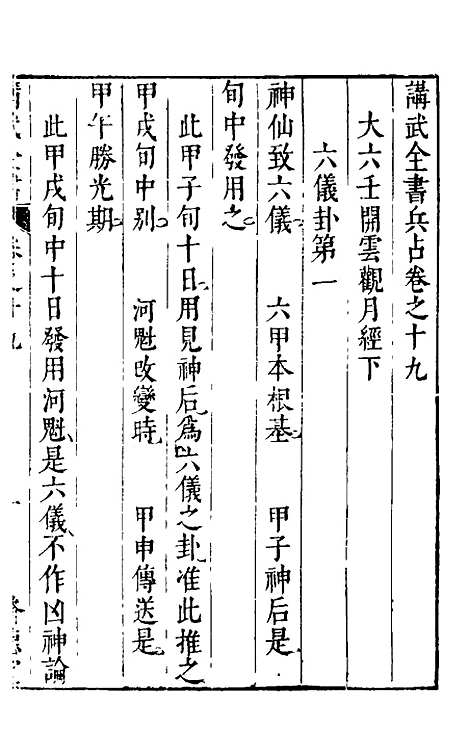 講武全書兵占卷之十九
大六壬開雲觀月經下
六儀卦第一
神仙致六儀 六甲本根基 甲子神后是
旬中發用之
此甲子旬十日用見神后為六儀之卦准此推之
甲戌旬中别 河魁改變時 甲申傳送是
甲午勝光期
此甲戌旬中十日發用河魁是六儀不作凶神論